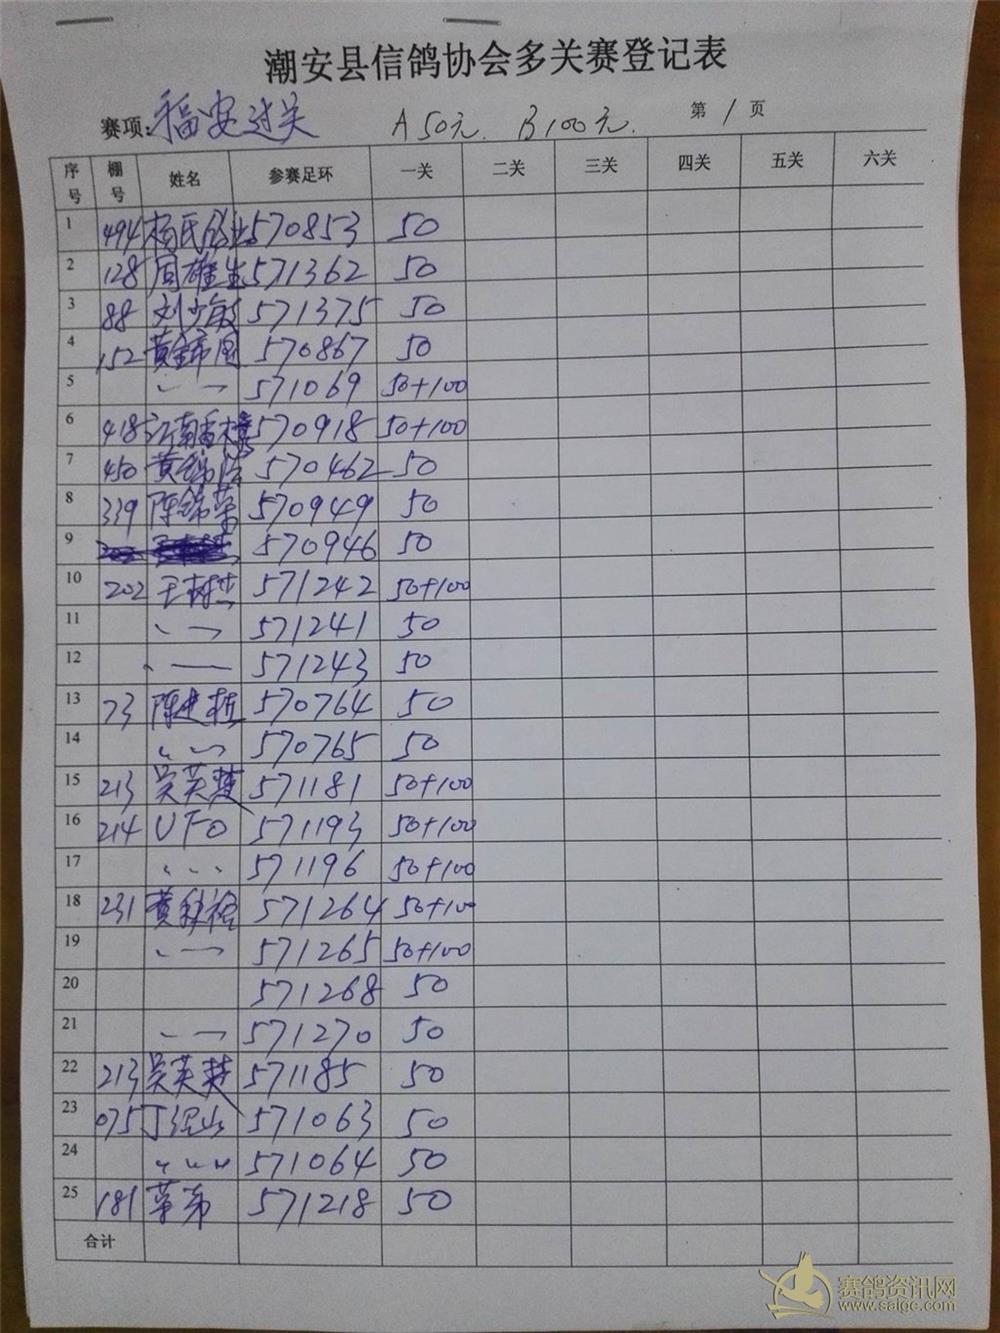 潮安县信鸽协会多关赛登记表
赛项: 福安过关 A 50元. B 100元. 第 1 页
序号 棚号 姓名 参赛足环 一关 二关 三关 四关 五关 六关
1 494 杨氏 570853 50
2 128 周雄生 571362 50
3 88 刘少敏 571375 50
4 152 黄锦围 570867 50
5 571069 50+100
6 418 江南 570918 50+100
7 450 黄锦 570462 50
8 339 陈锦荣 570949 50
9 570946 50
10 202 王树 571242 50+100
11 571241 50
12 571243 50
13 73 陈建植 570764 50
14 〃 570765 50
15 213 吴英楚 571181 50+100
16 214 UFO 571193 50+100
17 571196 50+100
18 231 黄 571264 50+100
19 571265 50+100
20 571268 50
21 571270 50
22 213 吴英楚 571185 50
23 075 丁 571063 50
24 〃 571064 50
25 181 571218 50
合计
赛鸽资讯网
www.saige.com